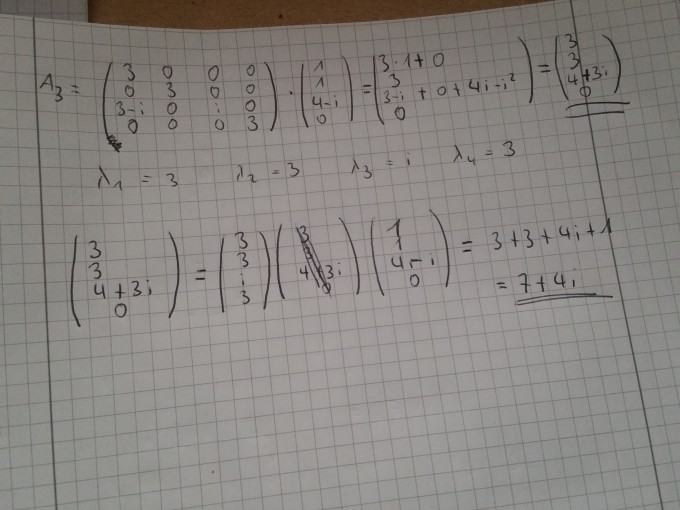 A₃ = ( 3 0 0 0 ; 0 3 0 0 ; 3-i 0 i 0 ; 0 0 0 3 ) · ( 1 ; 1 ; 4-i ; 0 ) = ( 3·1+0 ; 3 ; 3-i + 0 + 4i-i² ; 0 ) = ( 3 ; 3 ; 4+3i ; 0 )
λ₁ = 3 λ₂ = 3 λ₃ = i λ₄ = 3
( 3 ; 3 ; 4+3i ; 0 ) = ( 3 ; 3 ; i ; 3 ) ( 1 ; 1 ; 4-i ; 0 ) = 3+3+4i+1
= 7+4i